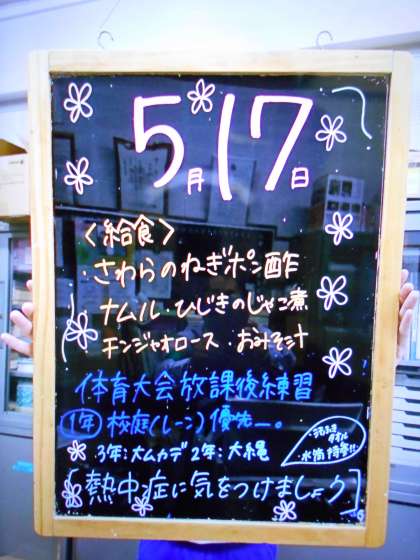 5月17日
〈給食〉
・さわらのねぎポン酢
ナムル・ひじきのじゃこ煮
チンジャオロース・おみそ汁
体育大会放課後練習
1年 校庭(レーン)優先―。
3年:大ムカデ 2年:大縄
・タオル
・水筒持参!!
[熱中症に気をつけましょう]